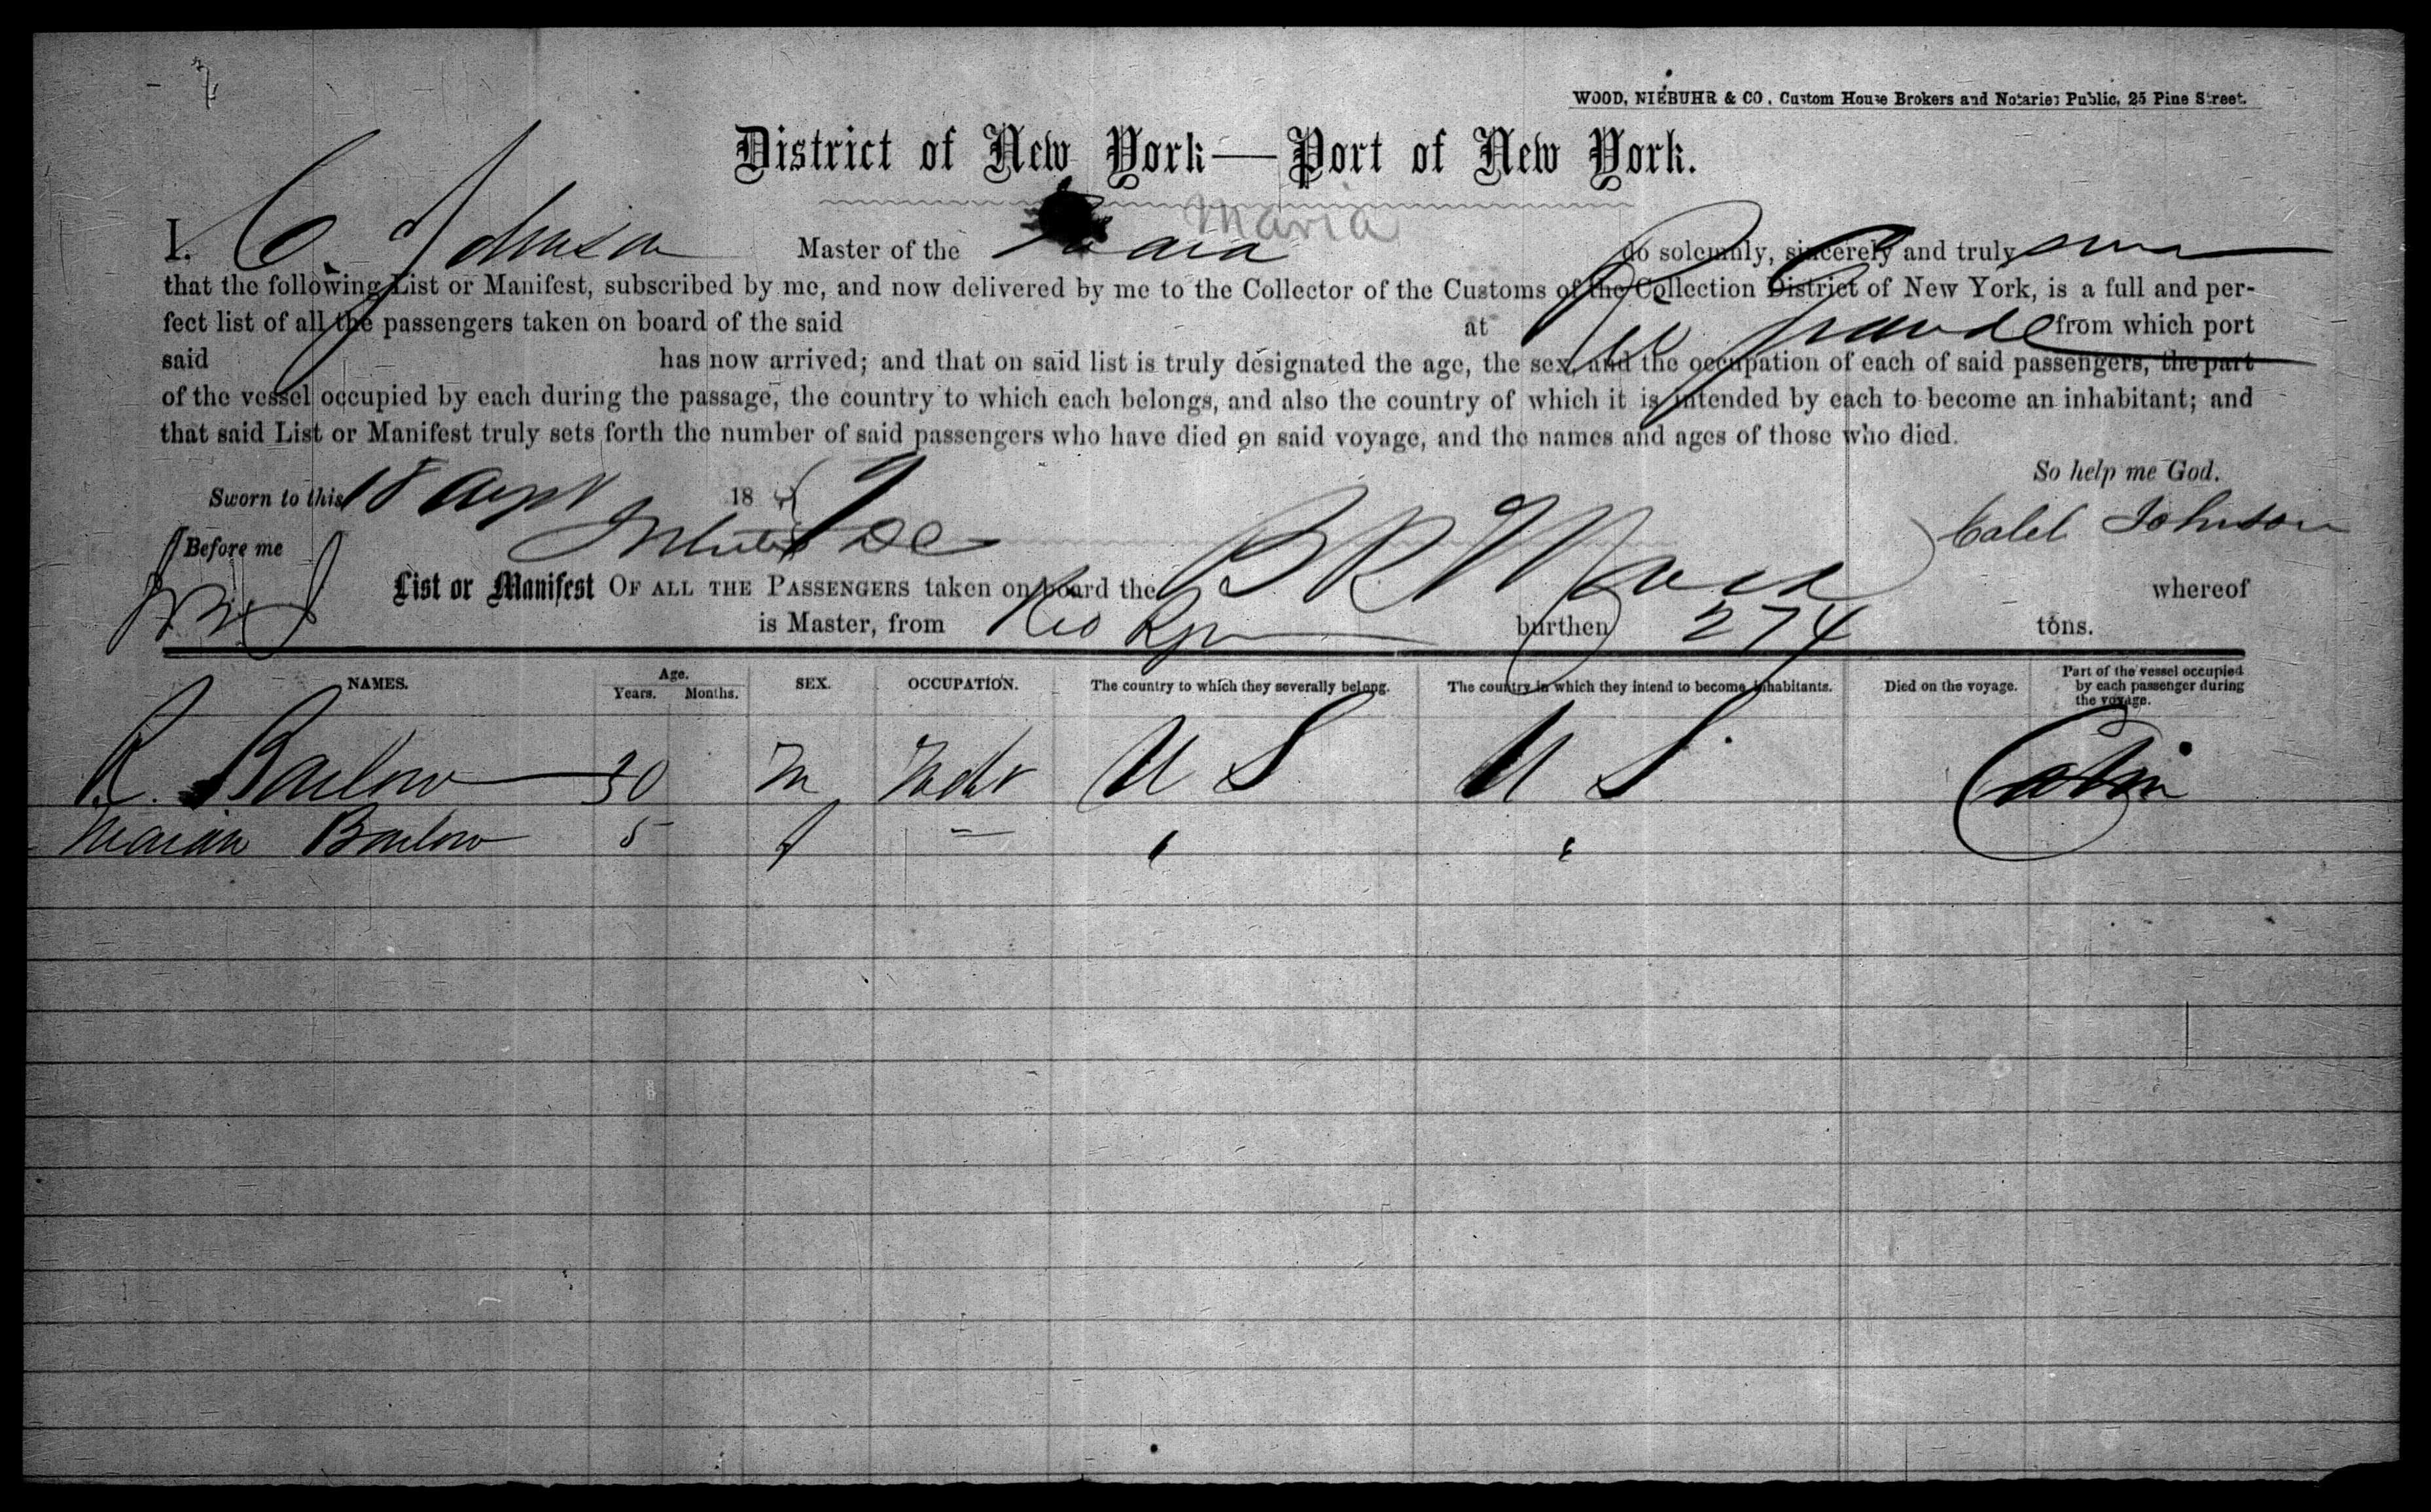 WOOD, NIEBUHR & CO, Custom House Brokers and Notaries Public, 25 Pine Street.
District of New York—Port of New York.
Maria
I. C. Johnson Master of the do solemnly, sincerely and truly
that the following List or Manifest, subscribed by me, and now delivered by me to the Collector of the Customs of the Collection District of New York, is a full and per-
fect list of all the passengers taken on board of the said at Rio Grande from which port
said has now arrived; and that on said list is truly designated the age, the sex, and the occupation of each of said passengers, the part
of the vessel occupied by each during the passage, the country to which each belongs, and also the country of which it is intended by each to become an inhabitant; and
that said List or Manifest truly sets forth the number of said passengers who have died on said voyage, and the names and ages of those who died.
So help me God.
Sworn to this 18 18
Caleb Johnson
Before me
List or Manifest OF ALL THE PASSENGERS taken on board the whereof
is Master, from Rio burthen 274 tons.
NAMES. Age. Years. Months. SEX. OCCUPATION. The country to which they severally belong. The country in which they intend to become inhabitants. Died on the voyage. Part of the vessel occupied by each passenger during the voyage.
R. Barlow 30 M U S U S Cabin
Marian Barlow 5 f — " "